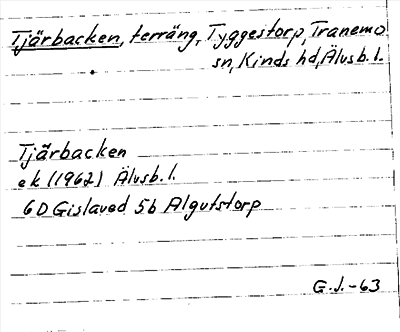 Tjärbacken, terräng, Tyggestorp, Tranemo
sn, Kinds hd, Älvsb. l.
Tjärbacken
ek (1962) Älvsb. l.
6D Gislaved 5b Algutstorp
G.J.-63